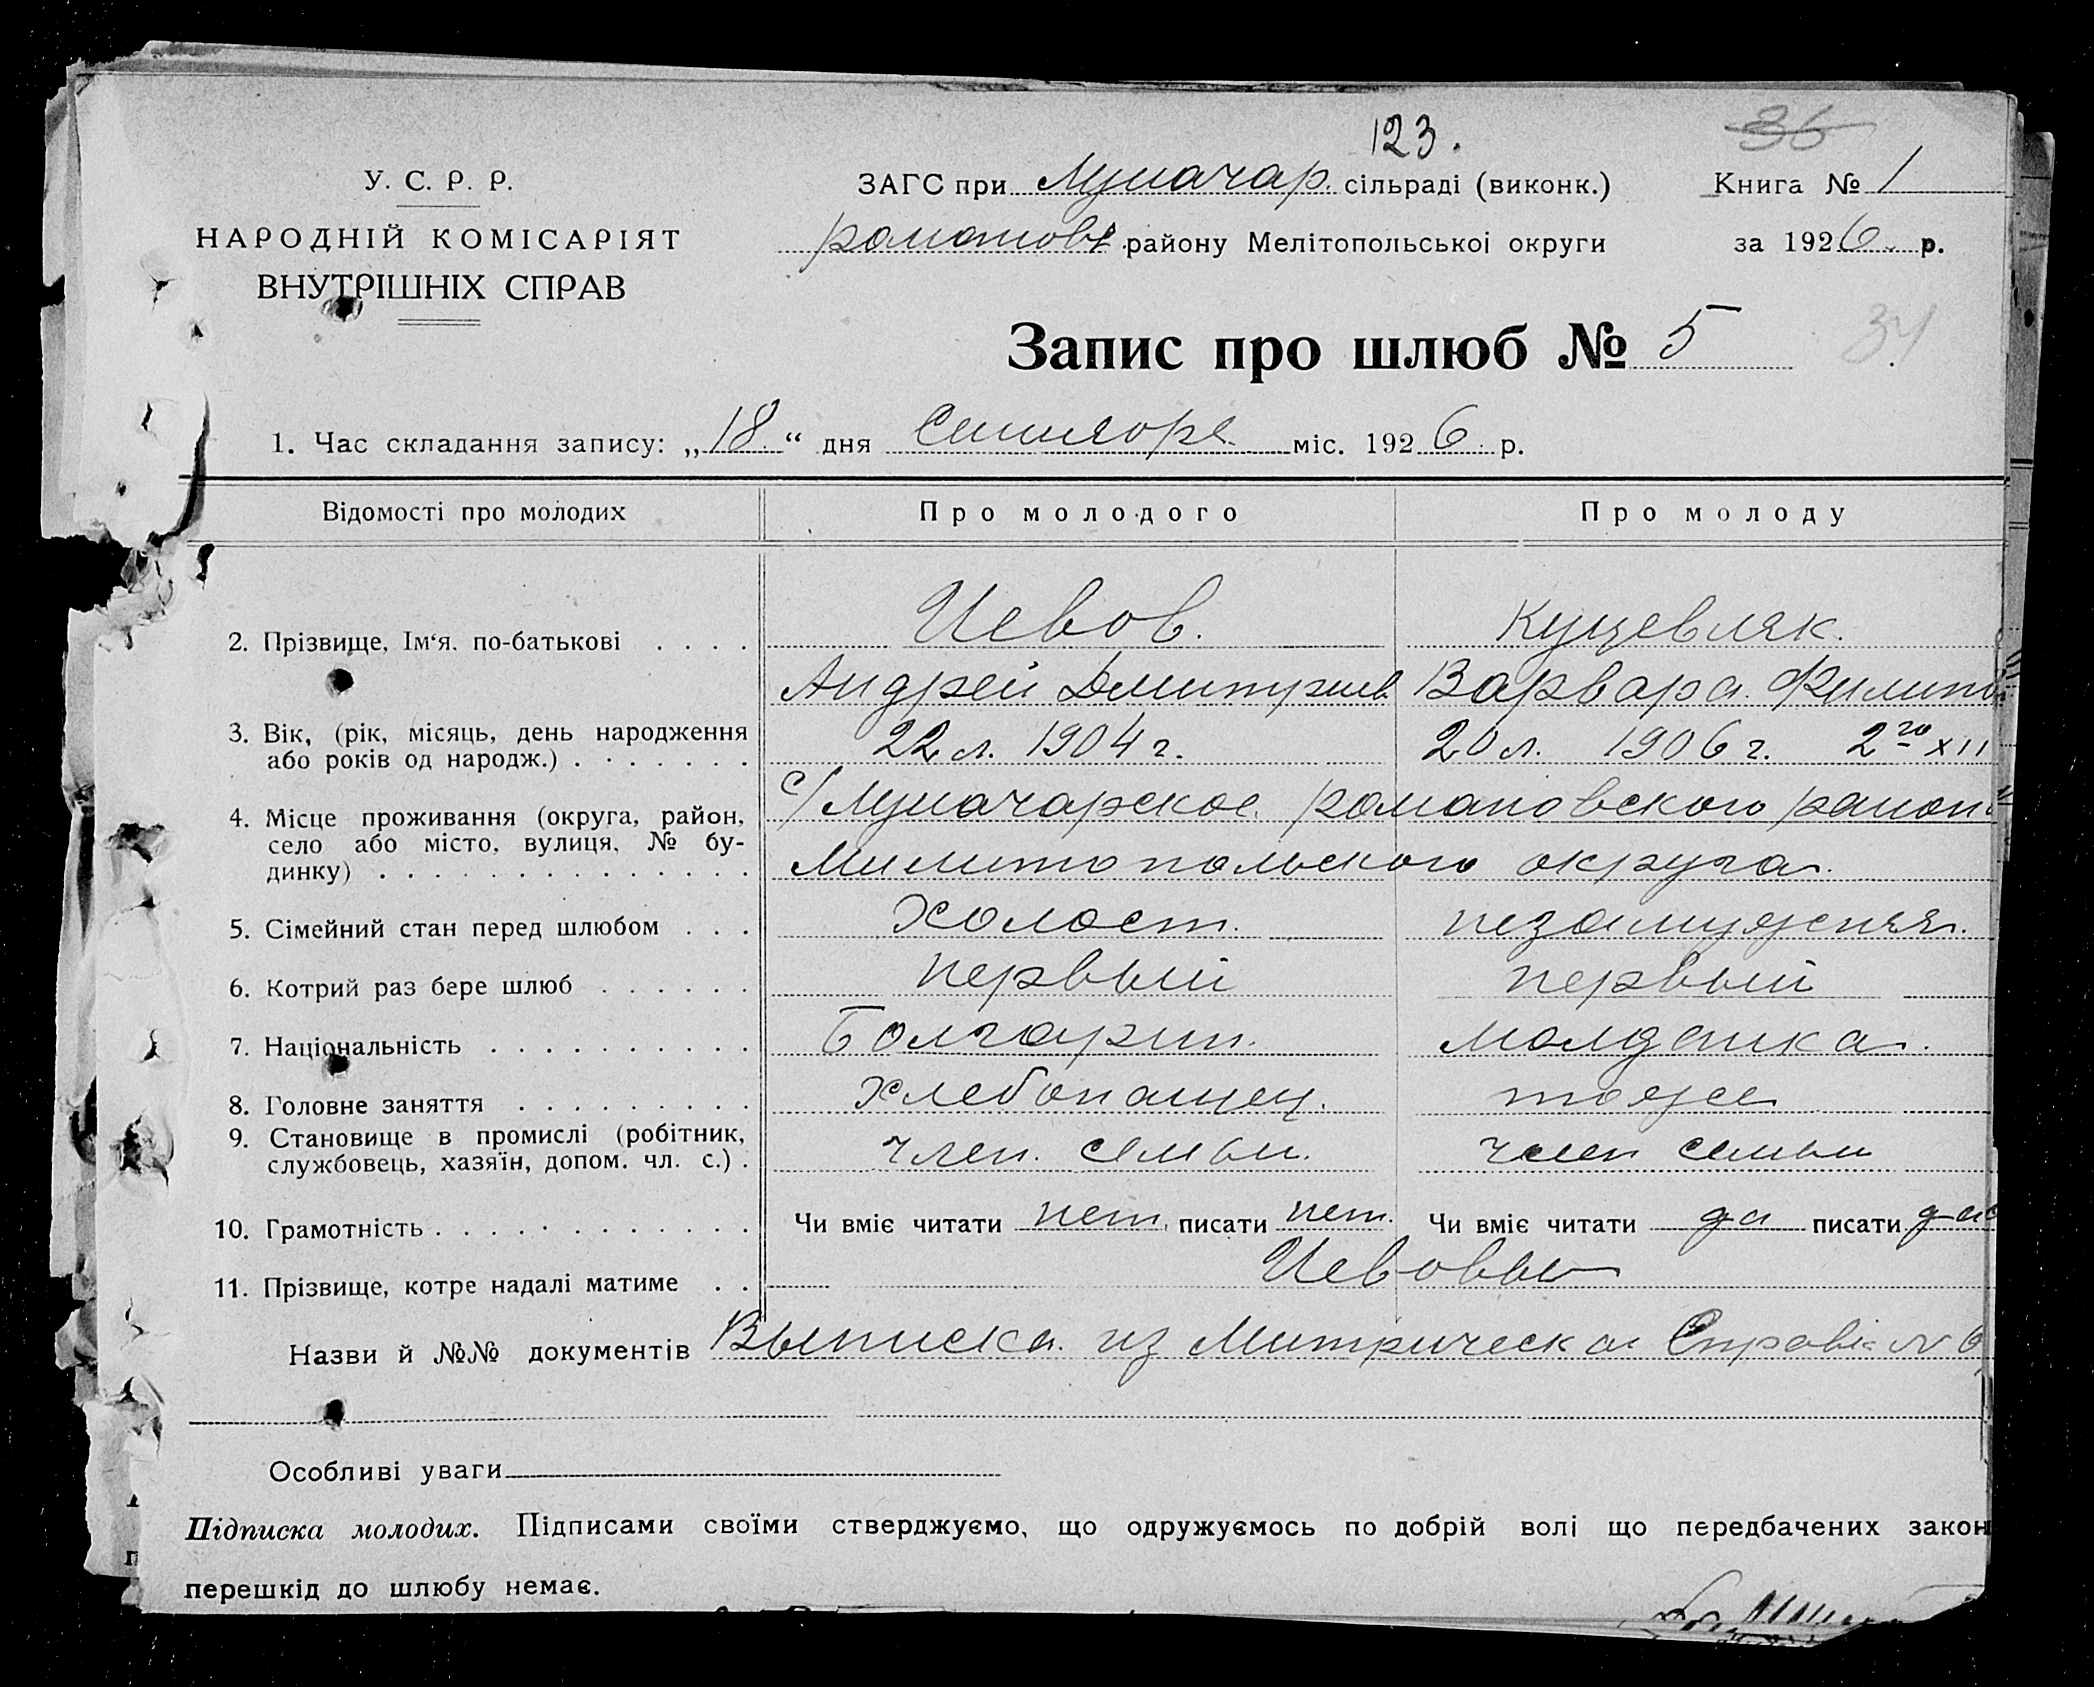 123.
36
У. С. Р. Р.
ЗАГС при Луначар. сільраді (виконк.)
Книга № 1
НАРОДНІЙ КОМІСАРІЯТ
романовс. району Мелітопольської округи
за 1926 р.
ВНУТРІШНІХ СПРАВ
Запис про шлюб № 5
34
1. Час складання запису: „18" дня Сентября міс. 1926 р.
Відомості про молодих
Про молодого
Про молоду
2. Прізвище, Ім'я. по-батькові . . . .
Чевов.
Куцевляк.
Андрей Дмитриев
Варвара Филип
3. Вік, (рік, місяць, день народження
або років од народж.) . . . . . . .
22 л. 1904 г.
20 л. 1906 г. 2го XII
4. Місце проживання (округа, район,
село або місто, вулиця, № бу-
динку) . . . . . . . . . . . . . .
с/Луначарское романовского район
Милитопольского округа.
5. Сімейний стан перед шлюбом . . .
Холост.
незамужняя.
6. Котрий раз бере шлюб . . . . . .
первый
первый
7. Національність . . . . . . . . . .
Болгарин.
молдавка.
8. Головне заняття . . . . . . . . .
хлебопашец.
тоже
9. Становище в промислі (робітник,
службовець, хазяїн, допом. чл. с.) .
член. семьи.
член семьи
10. Грамотність . . . . . . . . . . . .
Чи вміє читати нет писати нет.
Чи вміє читати да писати да
11. Прізвище, котре надалі матиме . .
Чевовы
Назви й №№ документів Выписка из Митрическа Справк N 6
Особливі уваги
Підписка молодих. Підписами своїми стверджуємо, що одружуємось по добрій волі що передбачених закон
перешкід до шлюбу немає.